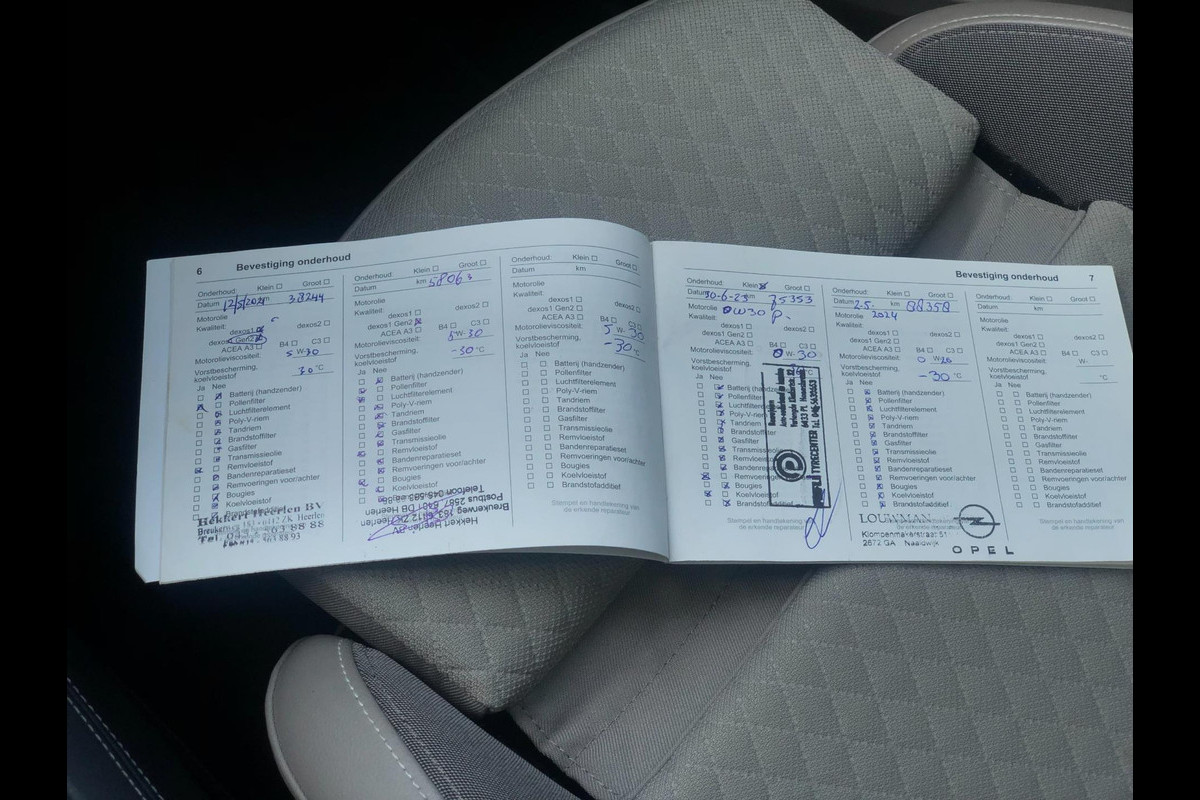 6
Bevestiging onderhoud
Onderhoud: Klein Groot
Datum 12/5/2021 km 38244
Motorolie
Kwaliteit:
dexos1 dexos2
dexos1 Gen2
ACEA A3 B4 C3
Motorolieviscositeit: 5 W-30
Vorstbescherming,
koelvloeistof 30 °C
Ja Nee
Batterij (handzender)
Pollenfilter
Luchtfilterelement
Poly-V-riem
Tandriem
Brandstoffilter
Gasfilter
Transmissieolie
Remvloeistof
Bandenreparatieset
Remvoeringen voor/achter
Bougies
Koelvloeistof
Hekkert Heerlen BV
Onderhoud: Klein Groot
Datum km 58063
Motorolie
Kwaliteit:
dexos1 dexos2
dexos1 Gen2
ACEA A3 B4 C3
Motorolieviscositeit: W-30
Vorstbescherming,
koelvloeistof -30 °C
Ja Nee
Batterij (handzender)
Pollenfilter
Luchtfilterelement
Poly-V-riem
Tandriem
Brandstoffilter
Gasfilter
Transmissieolie
Remvloeistof
Bandenreparatieset
Remvoeringen voor/achter
Bougies
Koelvloeistof
Hekkert Heerlen BV
Breukerweg 163, 6412 ZK Heerlen
Onderhoud: Klein Groot
Datum km
Motorolie
Kwaliteit:
dexos1 dexos2
dexos1 Gen2
ACEA A3 B4 C3
Motorolieviscositeit: 5 W-30
Vorstbescherming,
koelvloeistof -30 °C
Ja Nee
Batterij (handzender)
Pollenfilter
Luchtfilterelement
Poly-V-riem
Tandriem
Brandstoffilter
Gasfilter
Transmissieolie
Remvloeistof
Bandenreparatieset
Remvoeringen voor/achter
Bougies
Koelvloeistof
Brandstofadditief
Stempel en handtekening van
de erkende reparateur
Bevestiging onderhoud
7
Onderhoud: Klein Groot
Datum 30-6-23 km 75353
Motorolie 0W30 P.
Kwaliteit:
dexos1 dexos2
dexos1 Gen2
ACEA A3 B4 C3
Motorolieviscositeit: 0 W-30
Vorstbescherming,
koelvloeistof
Ja Nee
Batterij (handzender)
Pollenfilter
Luchtfilterelement
Poly-V-riem
Tandriem
Brandstoffilter
Gasfilter
Transmissieolie
Remvloeistof
Bandenreparatieset
Remvoeringen
Bougies
Koelvloeistof
Brandstofadditief
Stempel en handtekening
de erkende reparateur
Onderhoud: Klein Groot
Datum 2-5- km 88358
Motorolie 2024
Kwaliteit:
dexos1 dexos2
dexos1 Gen2
ACEA A3 B4 C3
Motorolieviscositeit: 0 W-20
Vorstbescherming,
koelvloeistof -30 °C
Ja Nee
Batterij (handzender)
Pollenfilter
Luchtfilterelement
Poly-V-riem
Tandriem
Brandstoffilter
Gasfilter
Transmissieolie
Remvloeistof
Bandenreparatieset
Remvoeringen voor/achter
Bougies
Koelvloeistof
Brandstofadditief
LOUWMAN
Klompenmakerstraat 51
2672 GA Naaldwijk
OPEL
Onderhoud: Klein Groot
Datum km
Motorolie
Kwaliteit:
dexos1 dexos2
dexos1 Gen2
ACEA A3 B4 C3
Motorolieviscositeit: W-
Vorstbescherming,
koelvloeistof °C
Ja Nee
Batterij (handzender)
Pollenfilter
Luchtfilterelement
Poly-V-riem
Tandriem
Brandstoffilter
Gasfilter
Transmissieolie
Remvloeistof
Bandenreparatieset
Remvoeringen voor/achter
Bougies
Koelvloeistof
Brandstofadditief
Stempel en handtekening van
de erkende reparateur